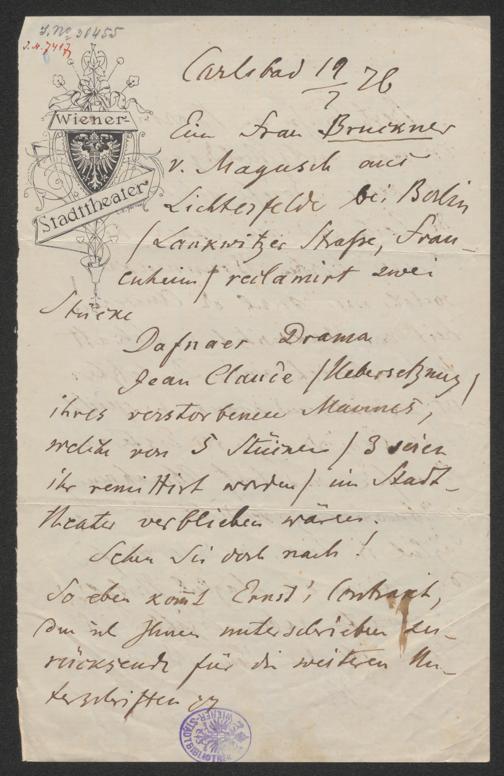 J. No 30455
J.N. 7417
Wiener
Stadttheater
Carlsbad 19/7 76
Eine Frau Bruckner
v. Magusch aus
Lichterfelde bei Berlin
/Lankwitzer Straße, Frau-
enheim/ reclamirt zwei
Stücke
Dafnaer Drama
Jean Claude /Uebersetzung/
ihres verstorbenen Mannes,
welche von 5 Stücken /3 seien
ihr remittirt worden/ im Stadt-
theater verblieben wären.
Sehen Sie doch nach!
So eben komt Ernst's Contract,
den ich Ihnen unterschrieben zu-
rücksende für die weiteren Un-
terschriften
WIENER-STADTBIBLIOTHEK